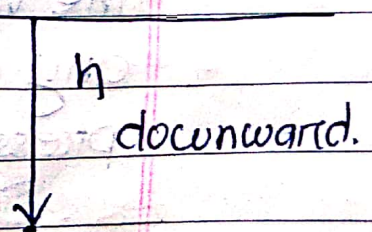 h
downward.